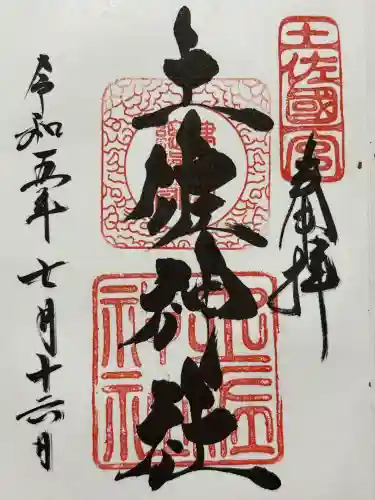 奉拝
土佐國一宮
土佐神社
土佐神社
令和五年七月十六日